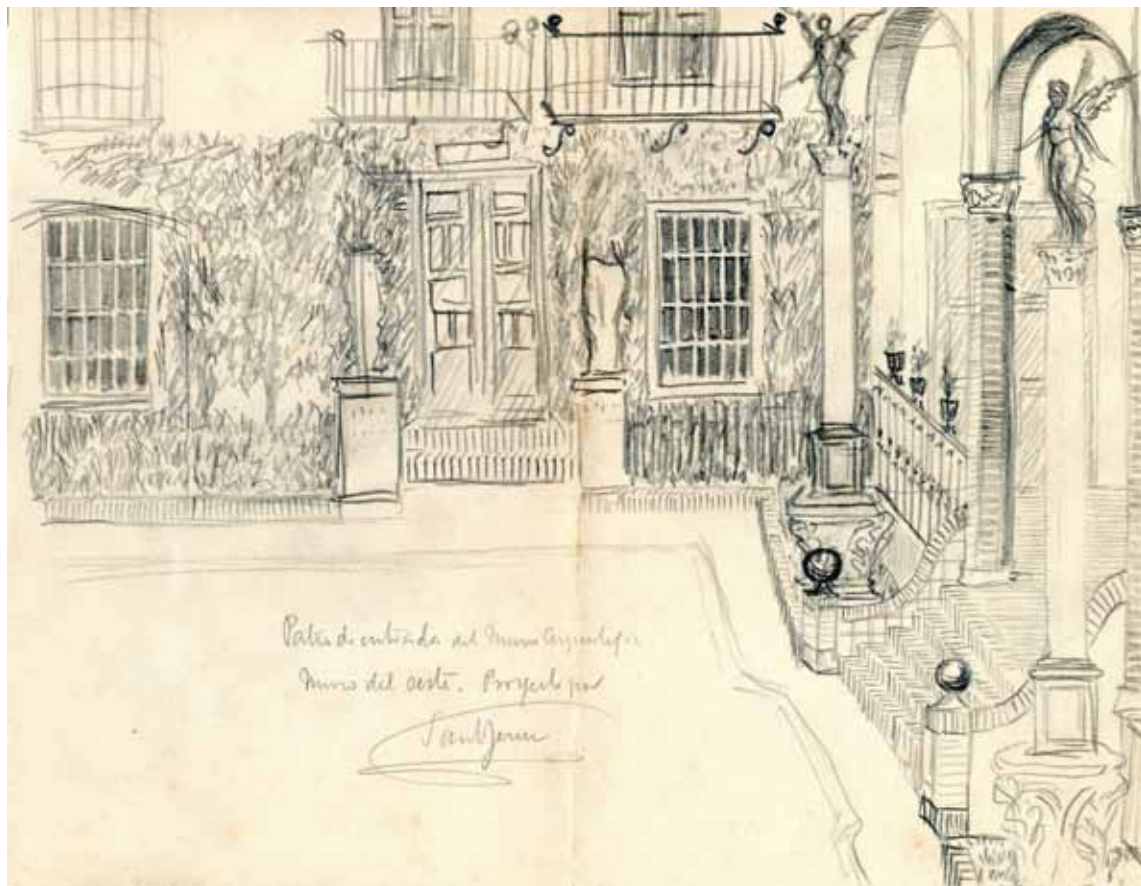 Patio de entrada del Museo Arqueológico
Muro del oeste. Proyecto por